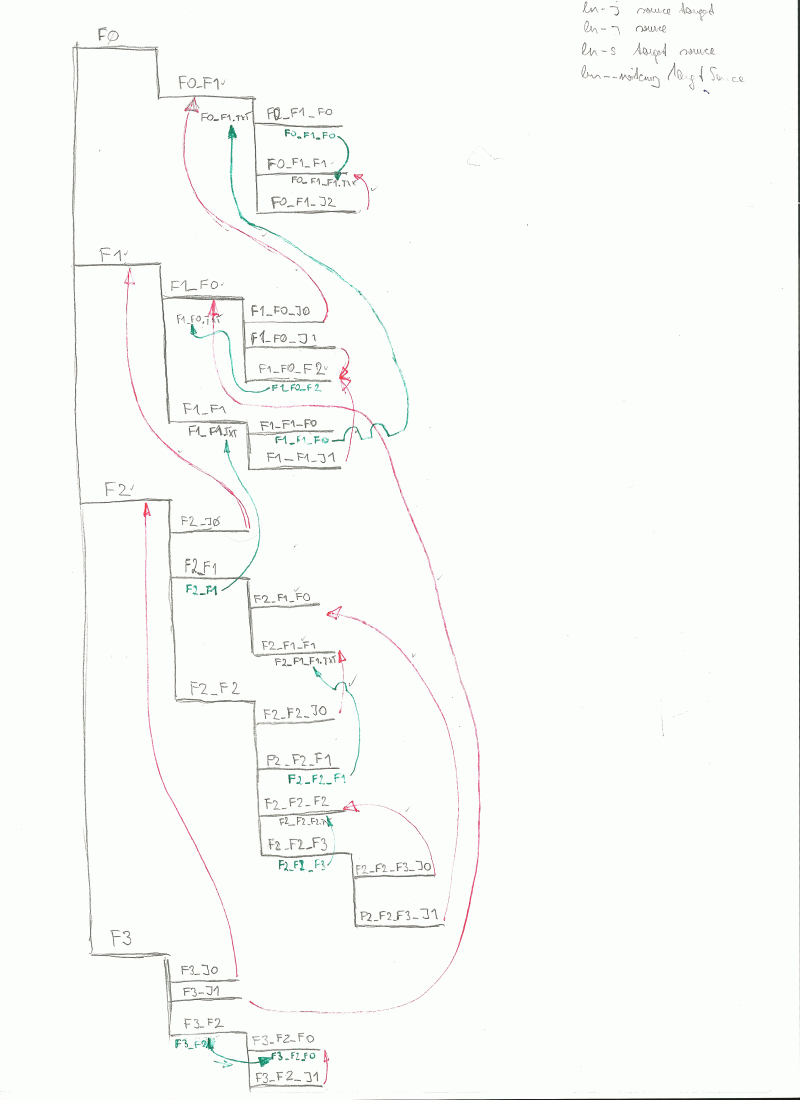 ln -j source target
ln -j source
ln -s target source
target Source
F0
F0_F1
F0_F1.TXT
F0_F1_F0
F0_F1_F0
F0_F1_F1
F0_F1_F1.TXT
F0_F1_J2
F1
F1_F0
F1_F0_J0
F1_F0.TXT
F1_F0_J1
F1_F0_F2
F1_F0_F2
F1_F1
F1_F1.TXT
F1_F1_F0
F1_F1_F0
F1_F1_J1
F2
F2_J0
F2_F1
F2_F1
F2_F1_F0
F2_F1_F1
F2_F1_F1.TXT
F2_F2
F2_F2_J0
F2_F2_F1
F2_F2_F1
F2_F2_F2
F2_F2_F2.TXT
F2_F2_F3
F2_F2_F3
F2_F2_F3_J0
F2_F2_F3_J1
F3
F3_J0
F3_J1
F3_F2
F3_F2
F3_F2_F0
F3_F2_F0
F3_F2_J1